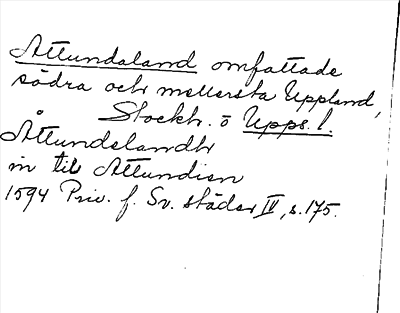 Attundaland omfattade
södra och mellersta Uppland,
Stockh. o Upps. l.
Åttundslandh
in til Attundien
1594 Priv. f. Sv. städer IV, s. 175.